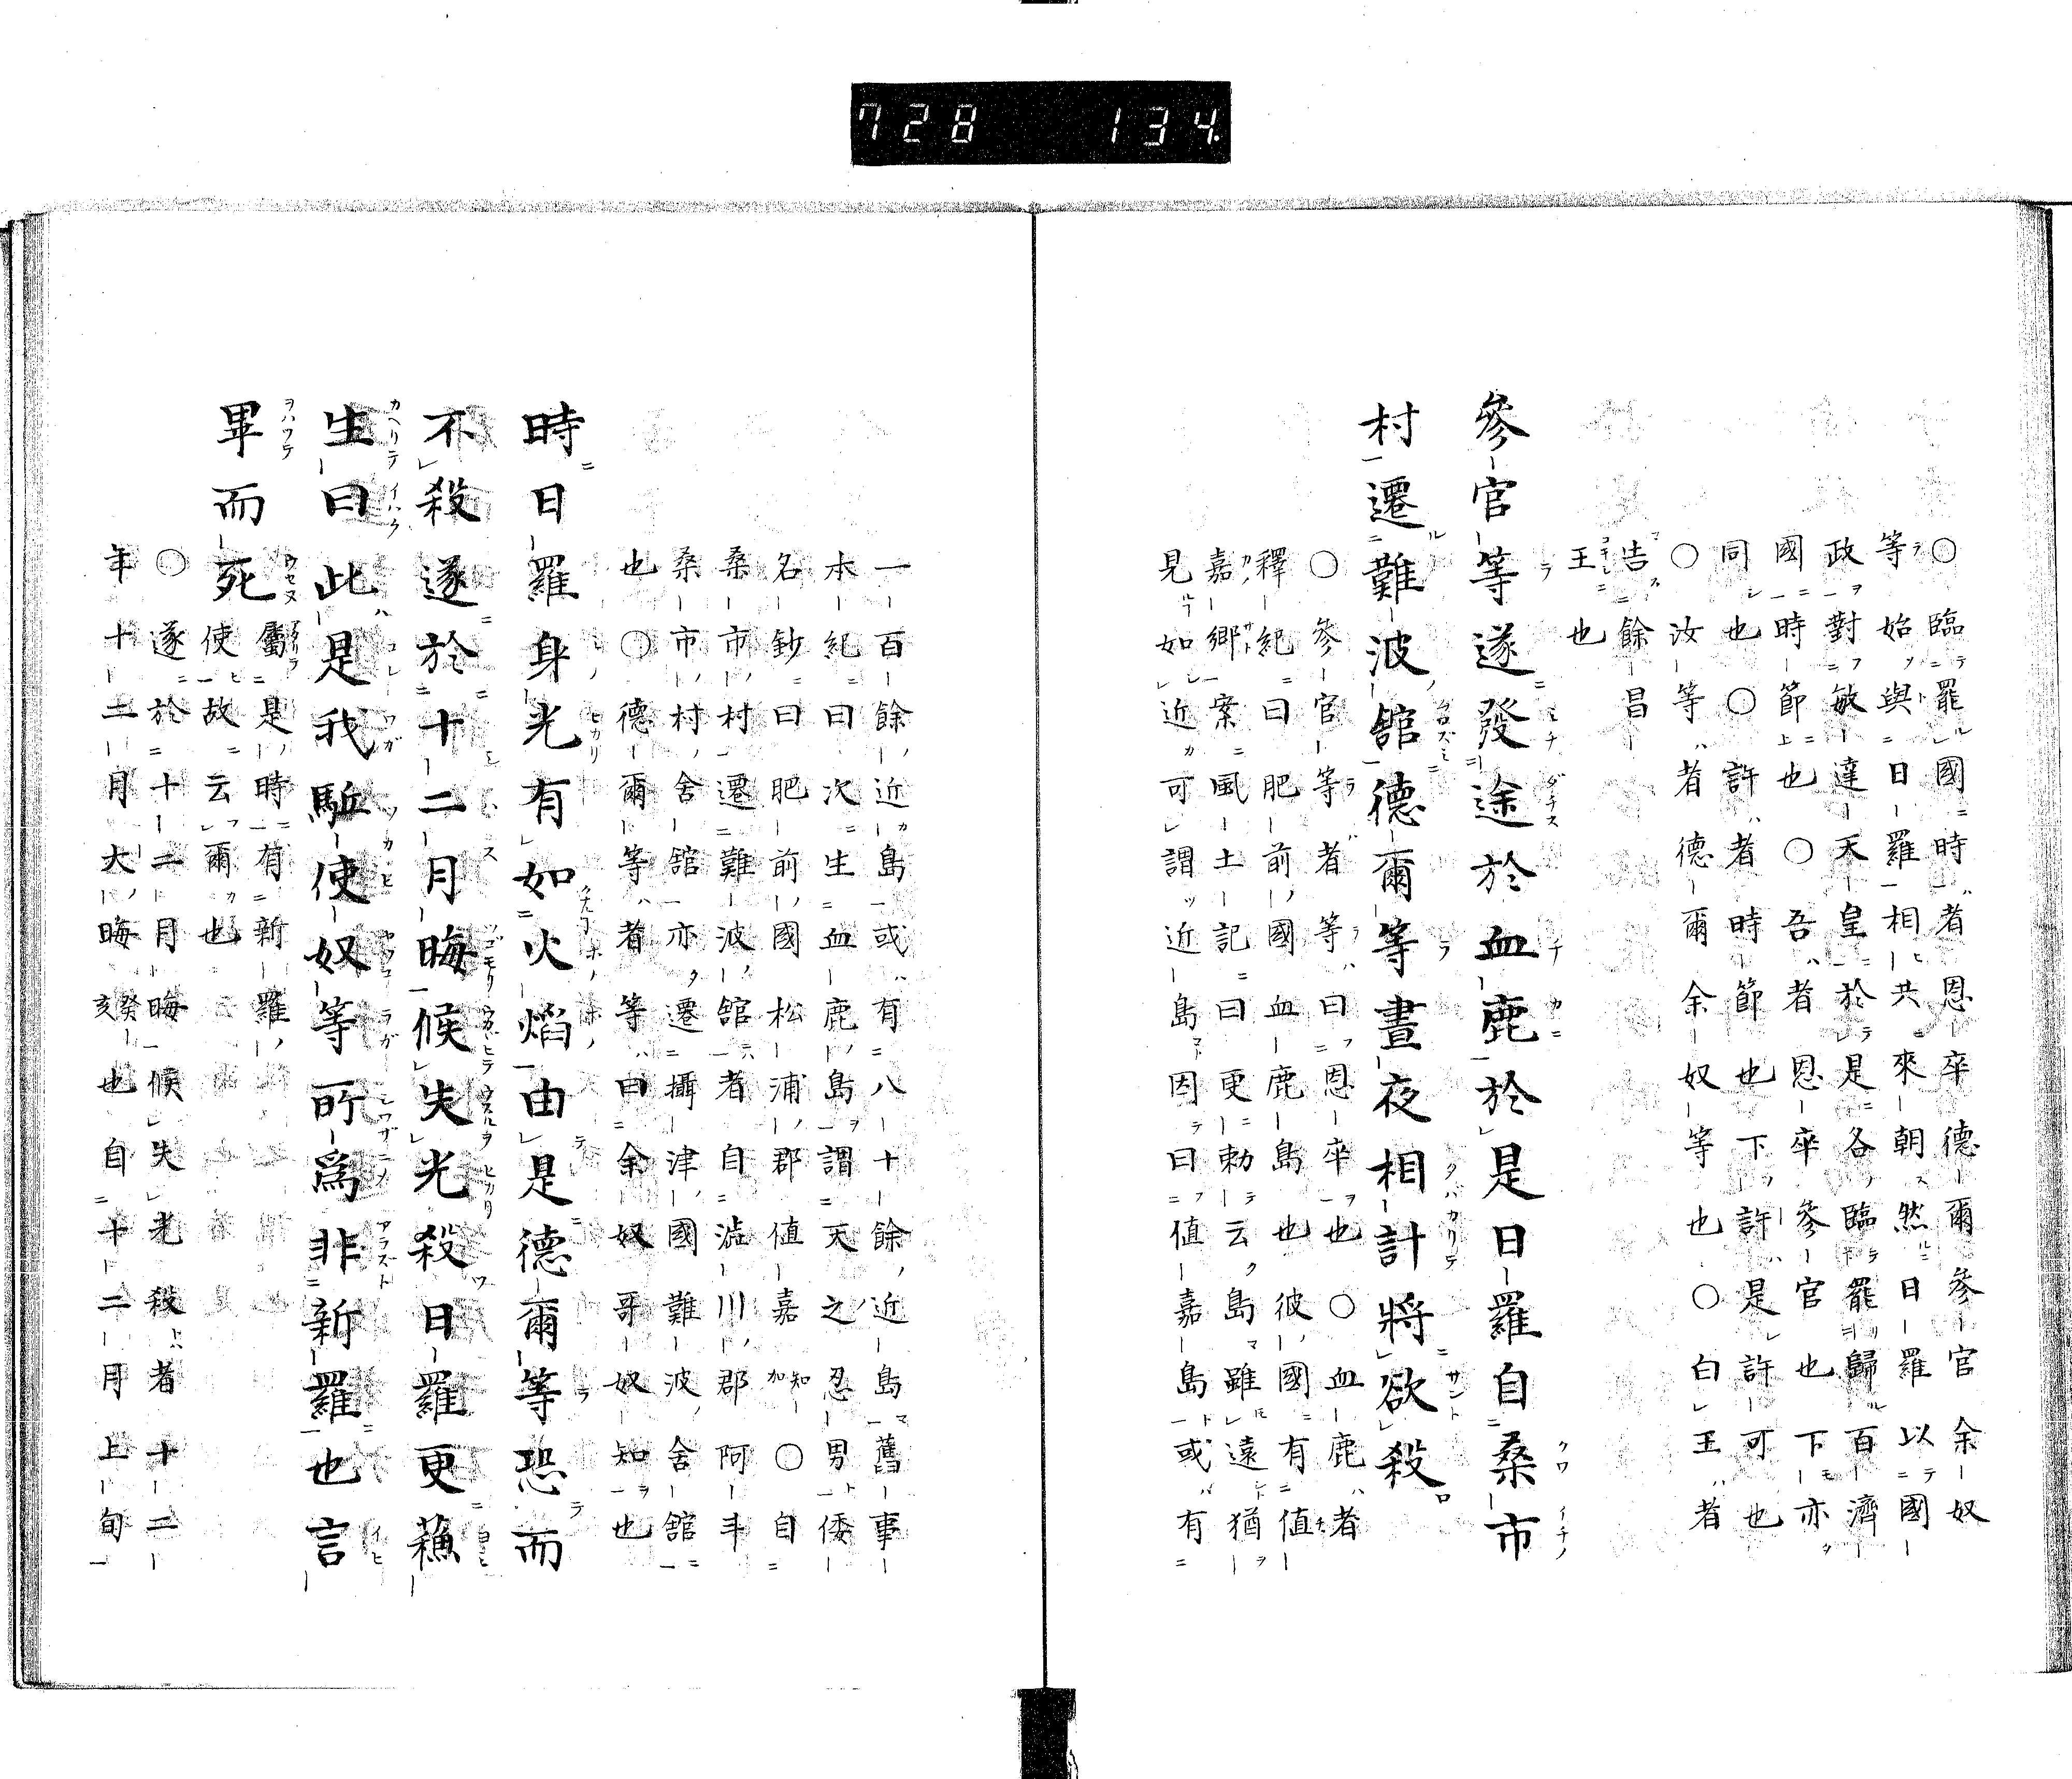 728 134
○臨罷國時者恩卒德爾參官余奴
等始與日羅相共來朝然日羅以國
政對敏達天皇於是各臨罷歸百濟
國時節也○吾者恩卒參官也下亦
同也○許者時節也下許是許可也
○汝等者德爾余奴等也○白王者
告餘昌
王也
參官等遂發途於血鹿於是日羅自桑市
村遷難波舘德爾等晝夜相計將欲殺
○參官等者等曰恩卒也○血鹿者
釋紀曰肥前國血鹿島也彼國有値
嘉鄉案風土記曰更勅云島雖遠猶
見如近可謂近島因曰値嘉島或有
一百餘近島或有八十餘近島舊事
本紀曰次生血鹿島謂天之忍男倭
名鈔曰肥前國松浦郡値嘉知加○自
桑市村遷難波舘者自澁川郡阿斗
桑市村舍舘亦遷攝津國難波舍舘
也○德爾等者等曰余奴哥奴知也
時日羅身光有如火焰由是德爾等恐而
不殺遂於十二月晦候失光殺日羅更蘓
生曰此是我駈使奴等所爲非新羅也言
畢而死屬是時有新羅
使故云爾也
○遂於十二月晦候失光殺者十二
年十二月大晦癸亥也自十二月上旬